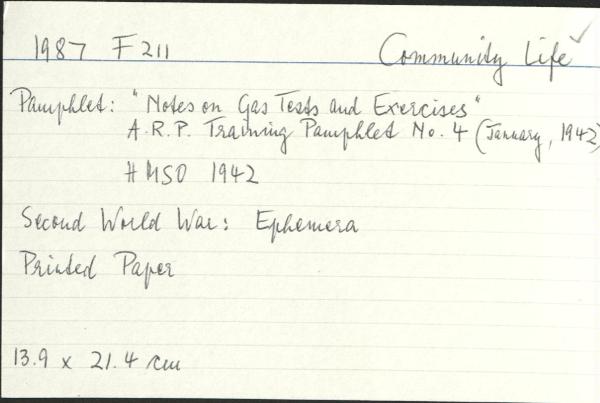 1987 F211 Community Life ✓
Pamphlet: "Notes on Gas Tests and Exercises"
A.R.P. Training Pamphlet No. 4 (January, 1942)
HMSO 1942
Second World War: Ephemera
Printed Paper
13.9 x 21.4 cm